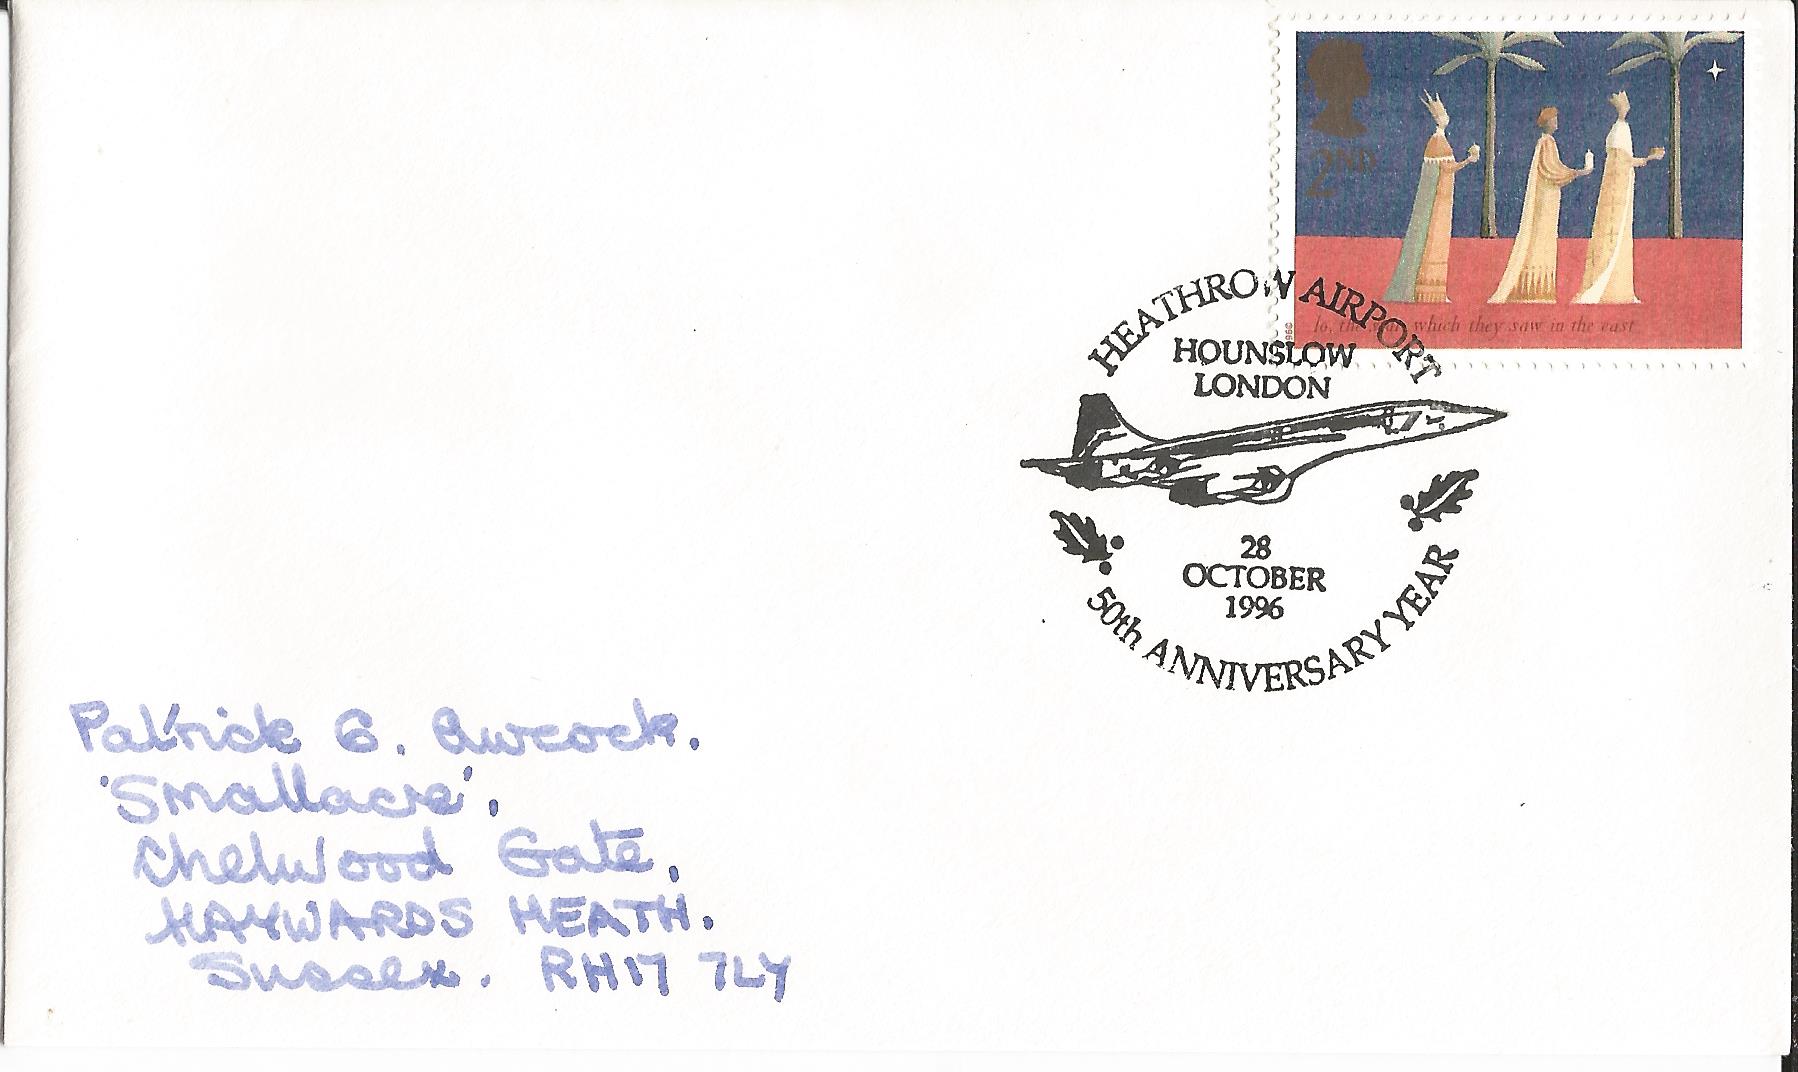 2ND
lo, the star which they saw in the east
1996
HEATHROW AIRPORT
HOUNSLOW
LONDON
28
OCTOBER
1996
50th ANNIVERSARY YEAR
Patrick G. Awcock.
'Smallacre',
Chelwood Gate,
HAYWARDS HEATH.
Sussex. RH17 7LY